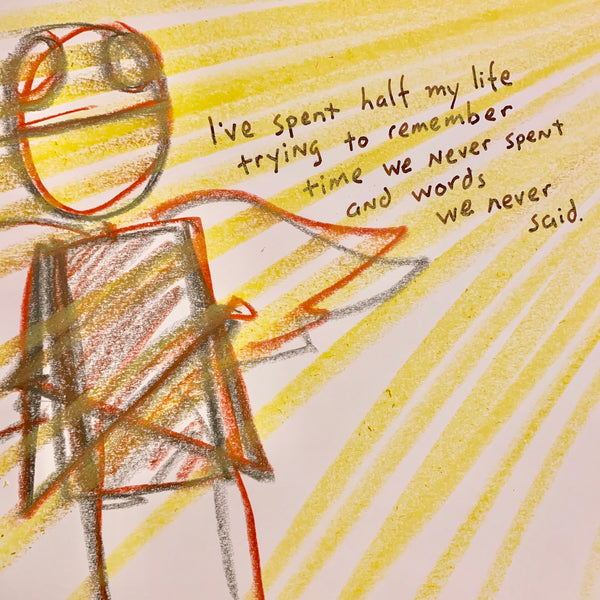 I've spent half my life
trying to remember
time we never spent
and words
we never
said.